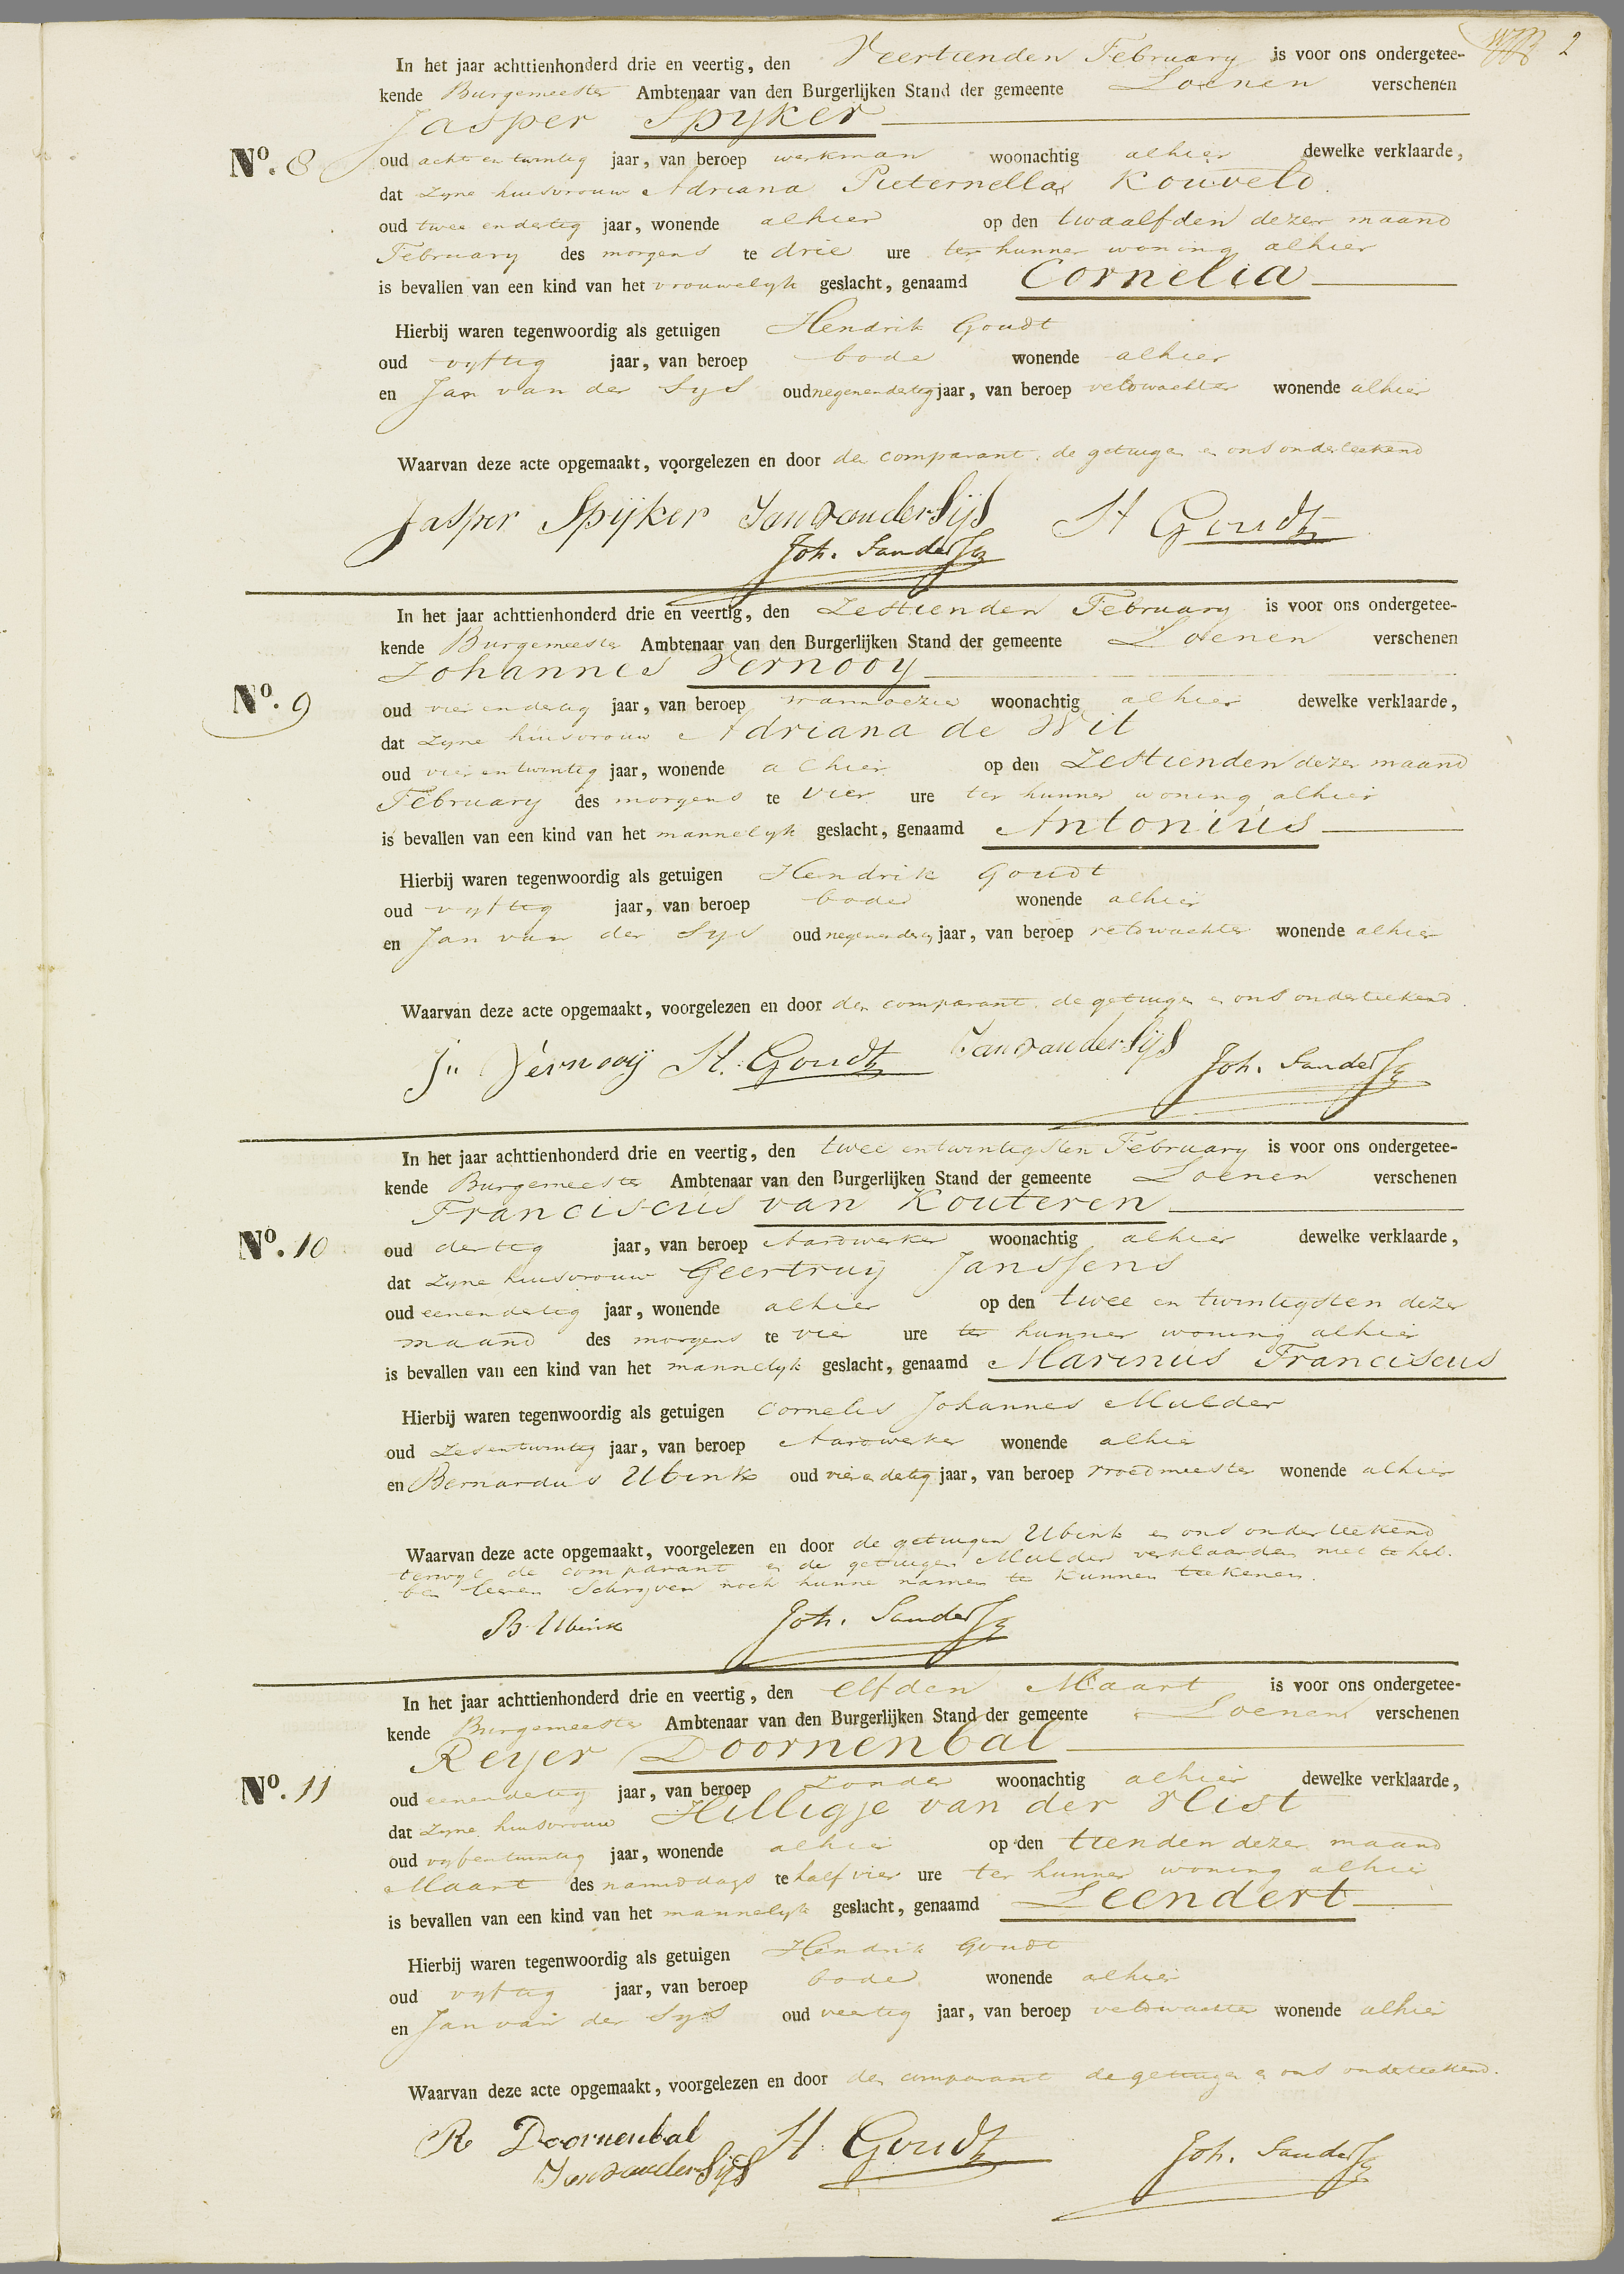 2
In het jaar achttienhonderd drie en veertig, den Veertienden February is voor ons ondergetee-
kende Burgemeester Ambtenaar van den Burgerlijken Stand der gemeente Loenen verschenen
Jasper Spyker
No. 8 oud acht en twintig jaar, van beroep werkman woonachtig alhier dewelke verklaarde,
dat zyne huisvrouw Adriana Pieternella Kouveld
oud twee en dertig jaar, wonende alhier op den twaalfden dezer maand
February des morgens te drie ure ter hunner woning alhier
is bevallen van een kind van het vrouwelyk geslacht, genaamd Cornelia
Hierbij waren tegenwoordig als getuigen Hendrik Goudt
oud vyftig jaar, van beroep bode wonende alhier
en Jan van der Sys oud negenendertig jaar, van beroep veldwachter wonende alhier
Waarvan deze acte opgemaakt, voorgelezen en door den comparant, de getuigen en ons onderteekend
Jasper Spijker Jan van der Sijs H Goudt
Joh. Sanders
In het jaar achttienhonderd drie en veertig, den Zestienden February is voor ons ondergetee-
kende Burgemeester Ambtenaar van den Burgerlijken Stand der gemeente Loenen verschenen
Johannes Vernooy
No. 9 oud vier en dertig jaar, van beroep woonachtig alhier dewelke verklaarde,
dat zyne huisvrouw Adriana de Wit
oud vier en twintig jaar, wonende alhier op den Zestienden dezer maand
February des morgens te vier ure ter hunner woning alhier
is bevallen van een kind van het mannelyk geslacht, genaamd Antonius
Hierbij waren tegenwoordig als getuigen Hendrik Goudt
oud vyftig jaar, van beroep bode wonende alhier
en Jan van der Sys oud negenendertig jaar, van beroep veldwachter wonende alhier
Waarvan deze acte opgemaakt, voorgelezen en door den comparant, de getuigen en ons onderteekend
Vernooij H. Goudt Jan van der Sijs Joh. Sanders
In het jaar achttienhonderd drie en veertig, den twee en twintigsten February is voor ons ondergetee-
kende Burgemeester Ambtenaar van den Burgerlijken Stand der gemeente Loenen verschenen
Franciscus van Kouteren
No. 10 oud dertig jaar, van beroep Aardwerker woonachtig alhier dewelke verklaarde,
dat zyne huisvrouw Geertruy Janssens
oud eenendertig jaar, wonende alhier op den twee en twintigsten dezer
maand des morgens te vier ure ter hunner woning alhier
is bevallen van een kind van het mannelyk geslacht, genaamd Marinus Franciscus
Hierbij waren tegenwoordig als getuigen Cornelis Johannes Mulder
oud zesentwintig jaar, van beroep Aardwerker wonende alhier
en Bernardus Ubink oud vierendertig jaar, van beroep vroedmeester wonende alhier
Waarvan deze acte opgemaakt, voorgelezen en door de getuigen Ubink en ons onderteekend
terwyl de comparant en de getuigen Mulder verklaarden niet te heb-
ben leeren Schryven noch hunne namen te kunnen teekenen.
B. Ubink Joh. Sanders
In het jaar achttienhonderd drie en veertig, den elfden Maart is voor ons ondergetee-
kende Burgemeester Ambtenaar van den Burgerlijken Stand der gemeente Loenen verschenen
Reyer Doornenbal
No. 11 oud eenendertig jaar, van beroep zonder woonachtig alhier dewelke verklaarde,
dat zyne huisvrouw Hilligje van der Vlist
oud vyfentwintig jaar, wonende alhier op den tienden dezer maand
Maart des namiddags te half vier ure ter hunner woning alhier
is bevallen van een kind van het mannelyk geslacht, genaamd Leendert
Hierbij waren tegenwoordig als getuigen Hendrik Goudt
oud vyftig jaar, van beroep bode wonende alhier
en Jan van der Sys oud veertig jaar, van beroep veldwachter wonende alhier
Waarvan deze acte opgemaakt, voorgelezen en door den comparant de getuigen en ons onderteekend.
R Doornenbal H. Goudt Joh. Sanders
Jan van der Sijs